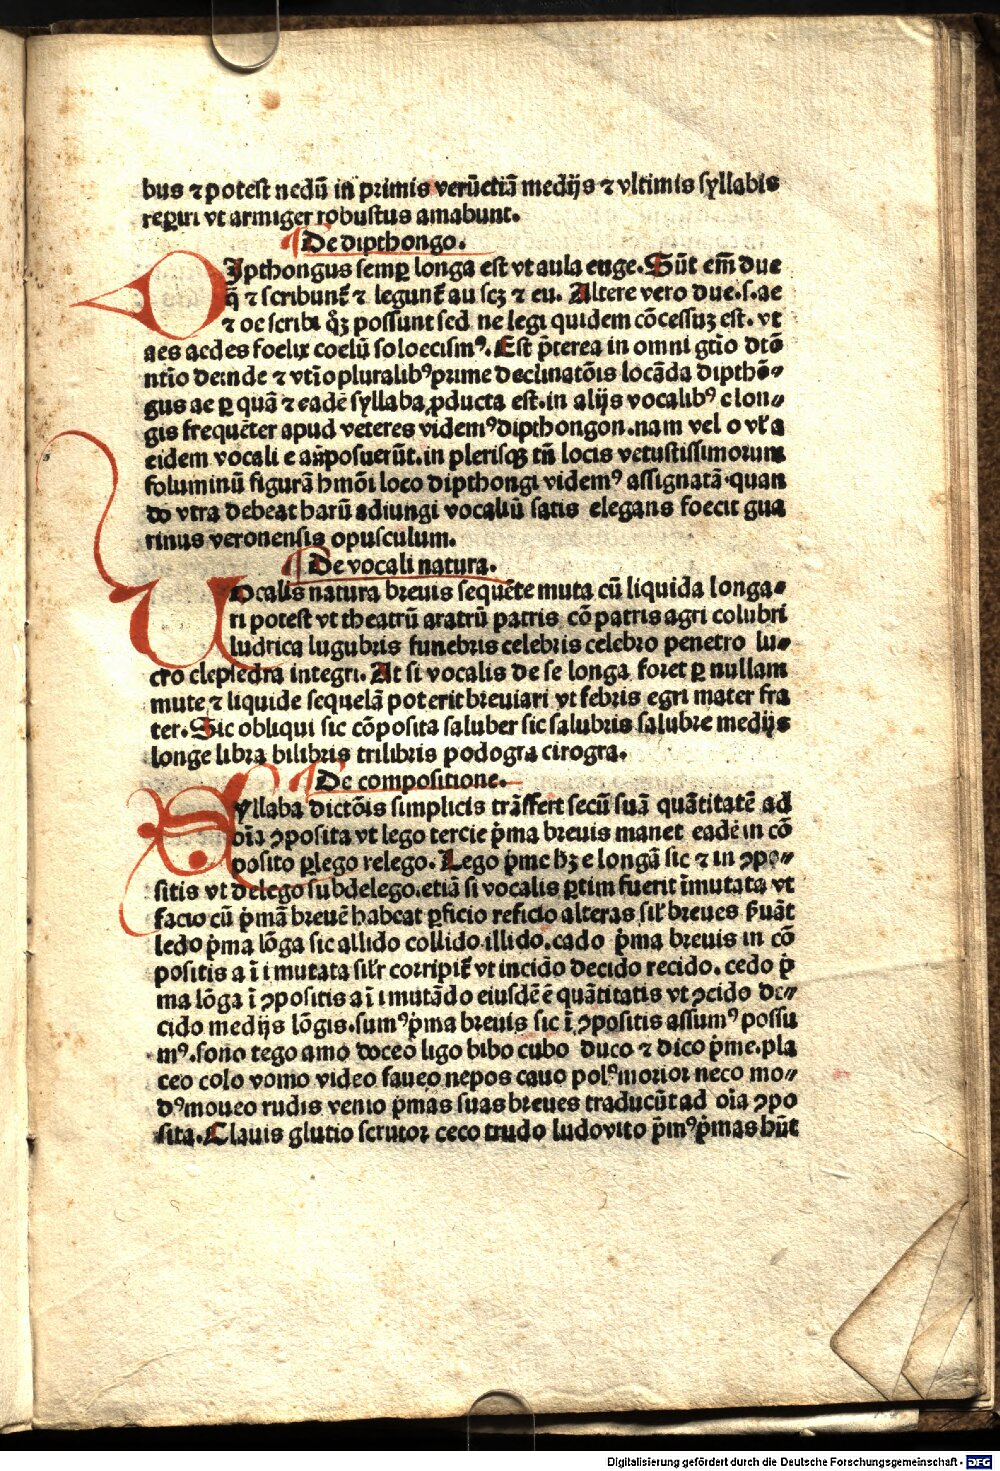 bus ⁊ potest nedū in primis verūetiā medijs ⁊ vltimis syllabis
reꝑiri vt armiger robustus amabunt.
¶ De dipthongo.
DIpthongus semꝑ longa est vt aula euge. Sūt em̄ due
q̄ ⁊ scribunt᷑ ⁊ legunt᷑ au scꝫ ⁊ eu. Altere vero due .s. ae
⁊ oe scribi q̇ꝫ possunt sed ne legi quidem cōcessuꝫ est. vt
aes aedes foelix coelū soloecismꝰ. Est p̄terea in omni gtīo dtō
ntīo deinde ⁊ vtīo pluralibꝰ prime declinatōis locāda dipthō⸗
gus ae ꝑ quā ⁊ eadē syllaba ꝓducta est. in alijs vocalibꝰ e lon⸗
gis frequēter apud veteres videmꝰ dipthongon. nam vel o vl̓ a
eidem vocali e an̄posuerūt. in plerisqꝫ tn̄ locis vetustissimorum
foluminū figurā hmōi loco dipthongi videmꝰ assignatā. quan
do vtra debeat harū adiungi vocaliū satis elegans foecit gua
rinus veronensis opusculum.
¶ De vocali natura.
VOcalis natura breuis sequēte muta cū liquida longa⸗
ri potest vt theatrū aratrū patris cō patris agri colubri
ludrica lugubris funebris celebris celebro penetro lu⸗
cro clepsedra integri. At si vocalis de se longa foret ꝑ nullam
mute ⁊ liquide sequelā poterit breuiari vt febris egri mater fra
ter. Sic obliqui sic cōposita saluber sic salubris salubre medijs
longe libra bilibris trilibris podogra cirogra.
¶ De compositione.
SYllaba dictōis simplicis trāsfert secū suā quātitatē ad
oīa ꝯposita vt lego tercie p̄ma breuis manet eadē in cō
posito ꝑlego relego. Lego p̄me hꝫ e longā sic ⁊ in ꝯpo⸗
sitis vt delego subdelego. etiā si vocalis ꝑtim fuerit īmutata vt
facio cū p̄mā breuē habeat ꝑficio reficio alteras sil̓r breues s̓uāt
ledo p̄ma lōga sic allido collido illido. cado p̄ma breuis in cō
positis a ī i mutata sil̓r corripit᷑ vt incido decido recido. cedo p̄
ma lōga ī ꝯpositis a ī i mutādo eiusdē ē quātitatis vt ꝯcido de⸗
cido medijs lōgis. sumꝰ p̄ma breuis sic ī ꝯpositis assumꝰ possu
mꝰ. sono tego amo doceo ligo bibo cubo duco ⁊ dico p̄me. pla
ceo colo vomo video faueo nepos cauo polꝰ morior neco mo⸗
dꝰ moueo rudis venio p̄mas suas breues traducūt ad oīa ꝯpo
sita. Clauis glutio scrutor ceco trudo ludo vito p̄mꝰ p̄mas hn̄t
Digitalisierung gefördert durch die Deutsche Forschungsgemeinschaft - DFG